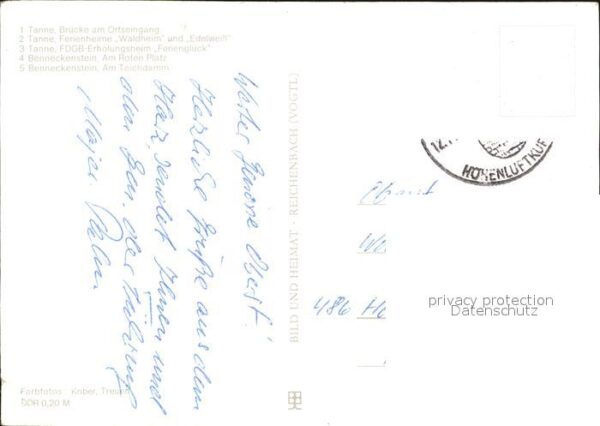 1 Tanne, Brücke am Ortseingang
2 Tanne, Ferienheime „Waldheim" und „Edelweiß"
3 Tanne, FDGB-Erholungsheim „Ferienglück"
4 Benneckenstein, Am Roten Platz
5 Benneckenstein, Am Teichdamm
Werter Genosse Oberst!
Herzliche Grüße aus dem
Harz sendet Ihnen und
allen Gen. der
Major
Farbfotos: Kober, Treuen
DDR 0,20 M
BILD UND HEIMAT · REICHENBACH (VOGTL)
12.
HÖHENLUFTKUR
486
privacy protection
Datenschutz